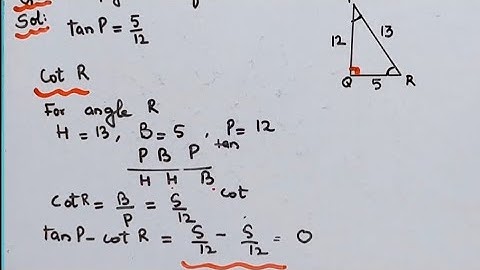 Sol:
tan P = 5/12
12
13
Q
5
R
Cot R
For angle R
H = 13, B = 5, P = 12
P B P
tan
H H B
cot
Cot R = B/P = 5/12
tan P - cot R = 5/12 - 5/12 = 0